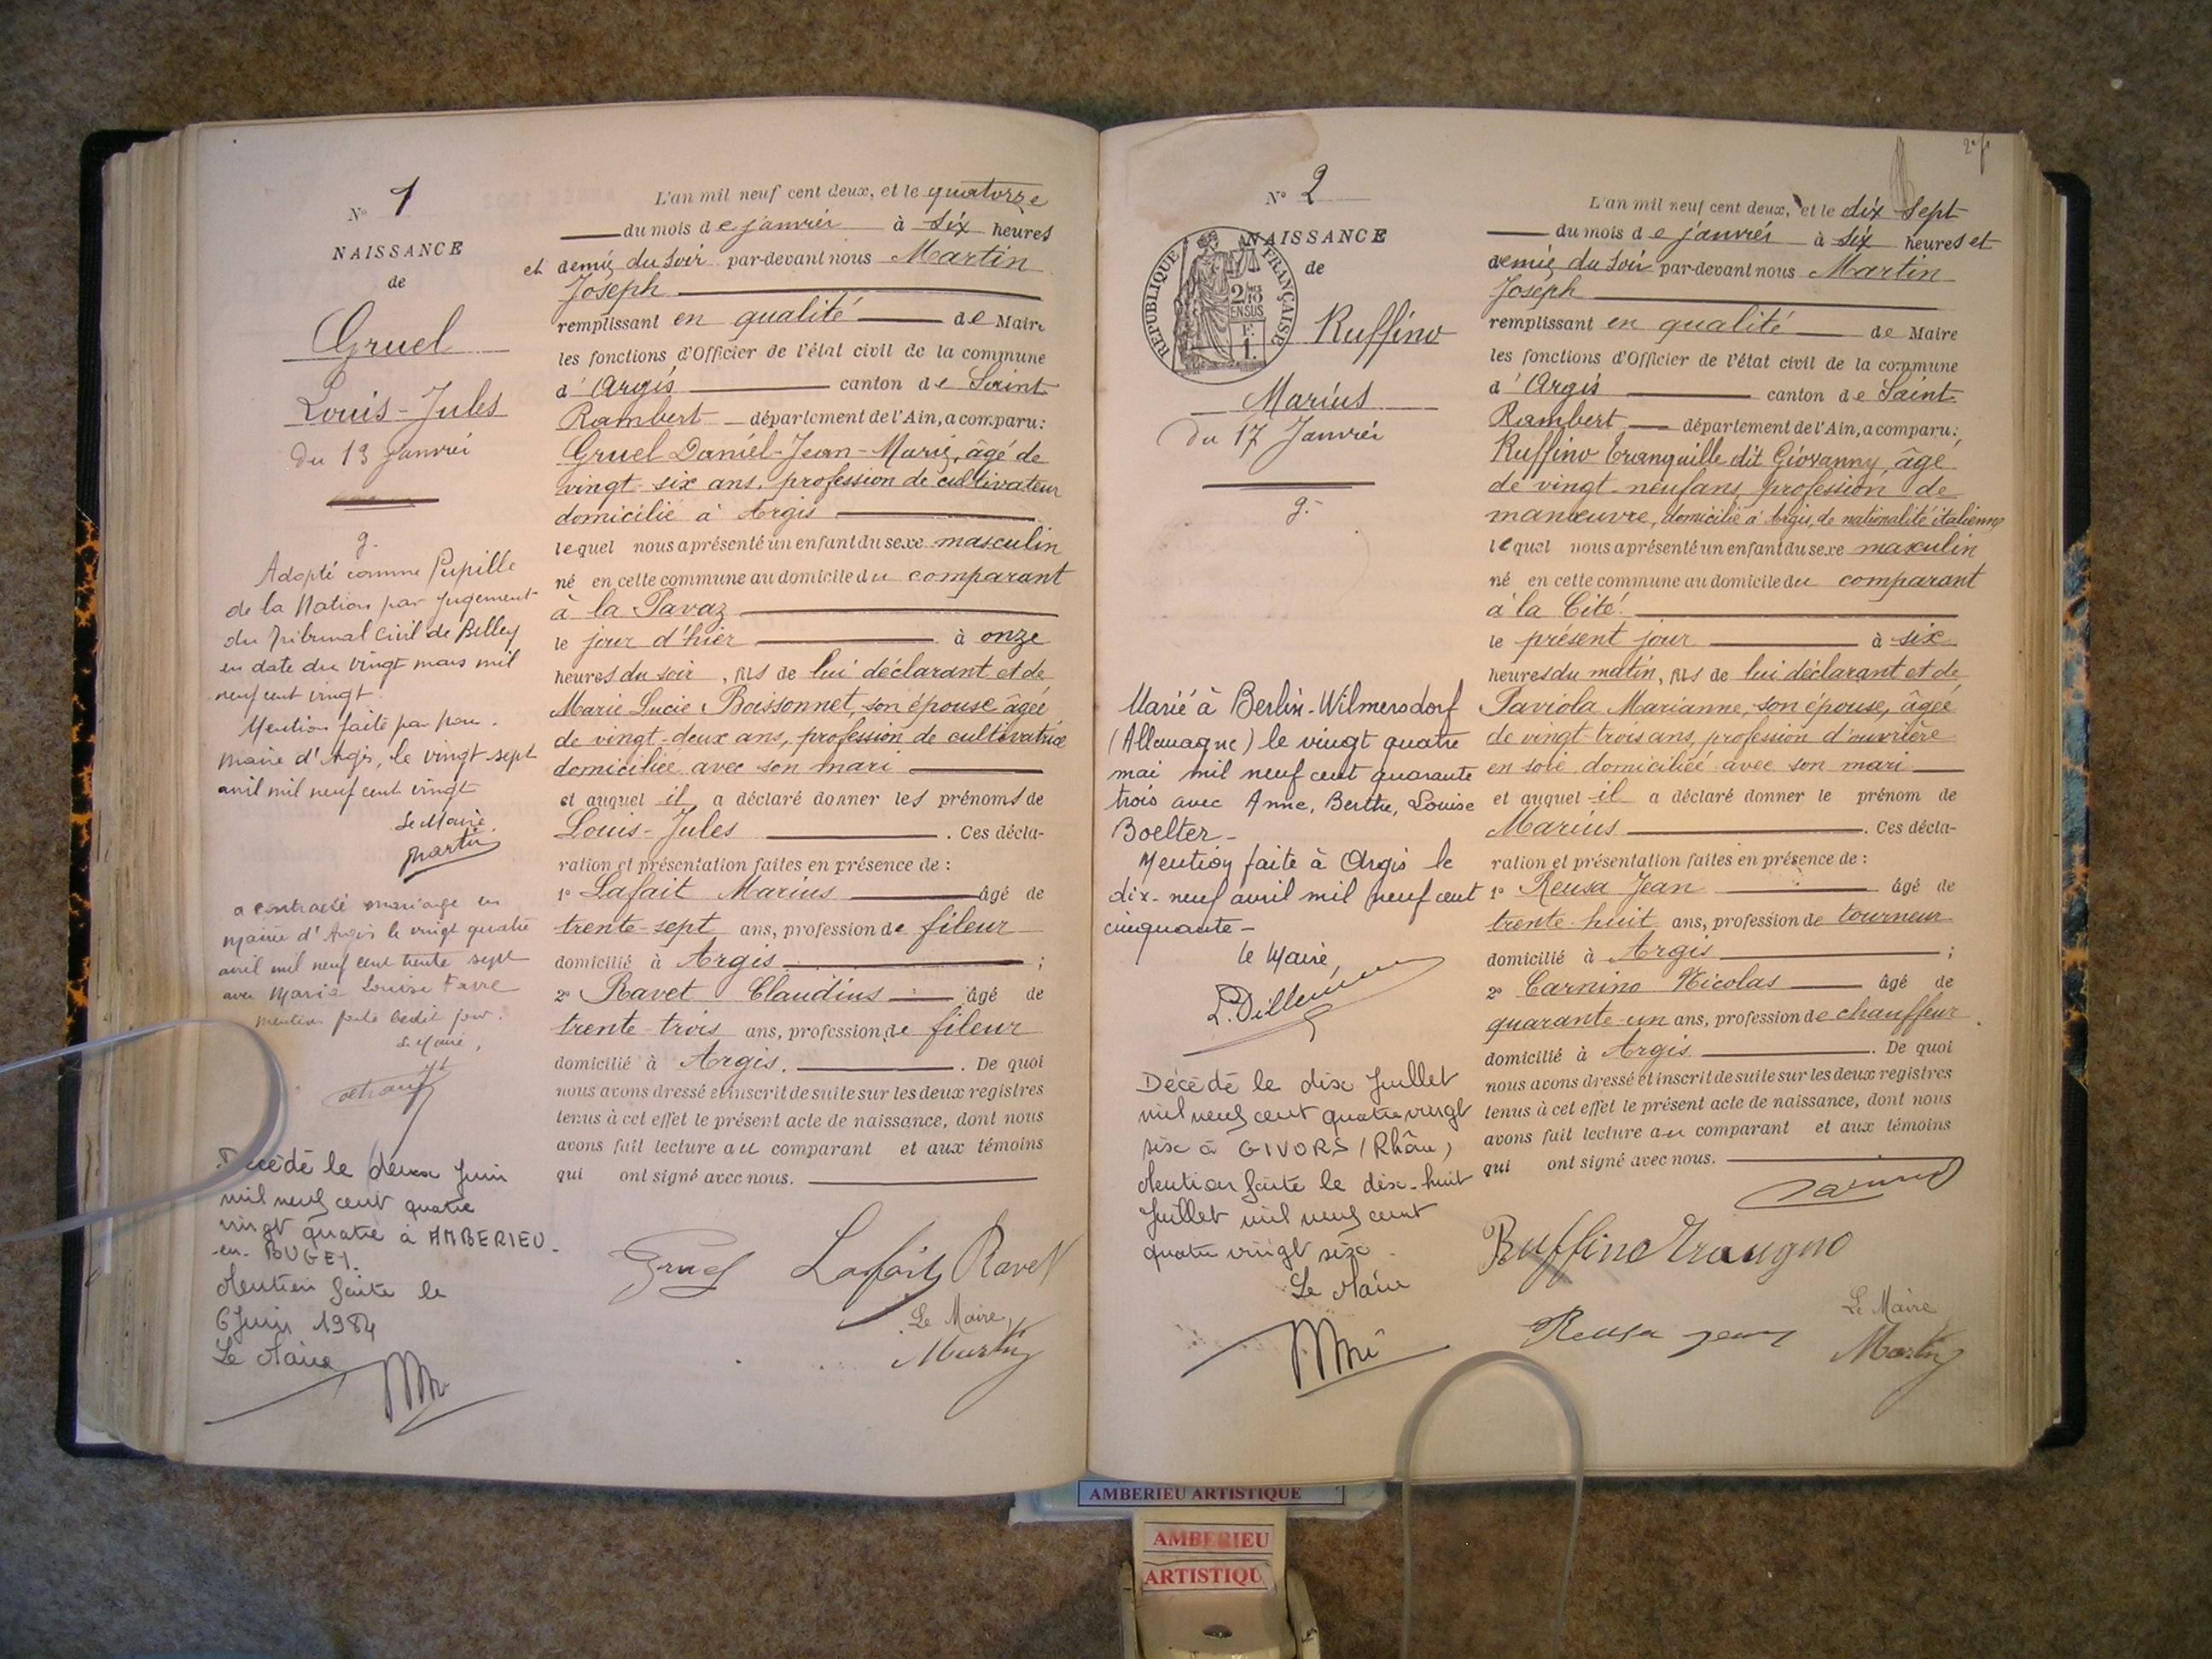 N° 1
NAISSANCE
de
Gruel
Louis-Jules
Du 13 Janvier
g.
Adopté comme Pupille
de la Nation par Jugement
du Tribunal Civil de Belley
en date du vingt mars mil
neuf cent vingt.
Mention faite par nous.
Maire d'Argis, le vingt sept
avril mil neuf cent vingt
Le Maire,
Martin
a contracté mariage en
mairie d'Argis le vingt quatre
avril mil neuf cent trente sept
avec Marie Louise Favre
mention faite ledit jour.
Le Maire,
Décédé le deux Juin
mil neuf cent quatre
vingt quatre à AMBERIEU-
-en-BUGEY.
Mention faite le
6 Juin 1984
Le Maire
L'an mil neuf cent deux, et le quatorze
du mois de janvier à six heures
et demie du soir par-devant nous Martin
Joseph
remplissant en qualité de Maire
les fonctions d'Officier de l'état civil de la commune
d'Argis canton de Saint
Rambert département de l'Ain, a comparu:
Gruel Daniel-Jean-Marie, âgé de
vingt-six ans, profession de cultivateur
domicilié à Argis
lequel nous a présenté un enfant du sexe masculin
né en cette commune au domicile du comparant
à la Pavaz
le jour d'hier à onze
heures du soir, fils de lui déclarant et de
Marie Lucie Boissonnet, son épouse âgée
de vingt-deux ans, profession de cultivatrice
domiciliée avec son mari
et auquel il a déclaré donner les prénoms de
Louis-Jules. Ces décla-
ration et présentation faites en présence de :
1° Lafait Marius âgé de
trente-sept ans, profession de fileur
domicilié à Argis ;
2° Ravet Claudius âgé de
trente-trois ans, profession de fileur
domicilié à Argis. De quoi
nous avons dressé et inscrit de suite sur les deux registres
tenus à cet effet le présent acte de naissance, dont nous
avons fait lecture au comparant et aux témoins
qui ont signé avec nous.
Gruel Lafait Ravet
Le Maire,
Martin
2e f
N° 2
NAISSANCE
de
RÉPUBLIQUE FRANÇAISE
2/10 EN SUS
Ruffino
Marius
Du 17 Janvier
g.
Marié à Berlin-Wilmersdorf
(Allemagne) le vingt quatre
mai mil neuf cent quarante
trois avec Anne, Berthe, Louise
Boelter-
Mention faite à Argis le
dix-neuf avril mil neuf cent
cinquante-
le Maire,
Décédé le dix Juillet
mil neuf cent quatre vingt
six à GIVORS (Rhône)
Mention faite le dix-huit
Juillet mil neuf cent
quatre vingt six.
Le Maire
L'an mil neuf cent deux, et le dix sept
du mois de janvier à six heures et
demie du soir par-devant nous Martin
Joseph
remplissant en qualité de Maire
les fonctions d'Officier de l'état civil de la commune
d'Argis canton de Saint
Rambert département de l'Ain, a comparu:
Ruffino Tranquille dit Giovanny, âgé
de vingt-neuf ans, profession de
manœuvre, domicilié à Argis, de nationalité italienne
lequel nous a présenté un enfant du sexe masculin
né en cette commune au domicile du comparant
à la Cité.
le présent jour à six
heures du matin, fils de lui déclarant et de
Paviola Marianne, son épouse, âgée
de vingt-trois ans, profession d'ouvrière
en soie domiciliée avec son mari
et auquel il a déclaré donner le prénom de
Marius. Ces décla-
ration et présentation faites en présence de :
1° Reusa Jean âgé de
trente-huit ans, profession de tourneur
domicilié à Argis ;
2° Carnino Nicolas âgé de
quarante-un ans, profession de chauffeur
domicilié à Argis. De quoi
nous avons dressé et inscrit de suite sur les deux registres
tenus à cet effet le présent acte de naissance, dont nous
avons fait lecture au comparant et aux témoins
qui ont signé avec nous.
Ruffino
Reusa Jean
Le Maire
Martin
AMBERIEU ARTISTIQUE
AMBERIEU
ARTISTIQU